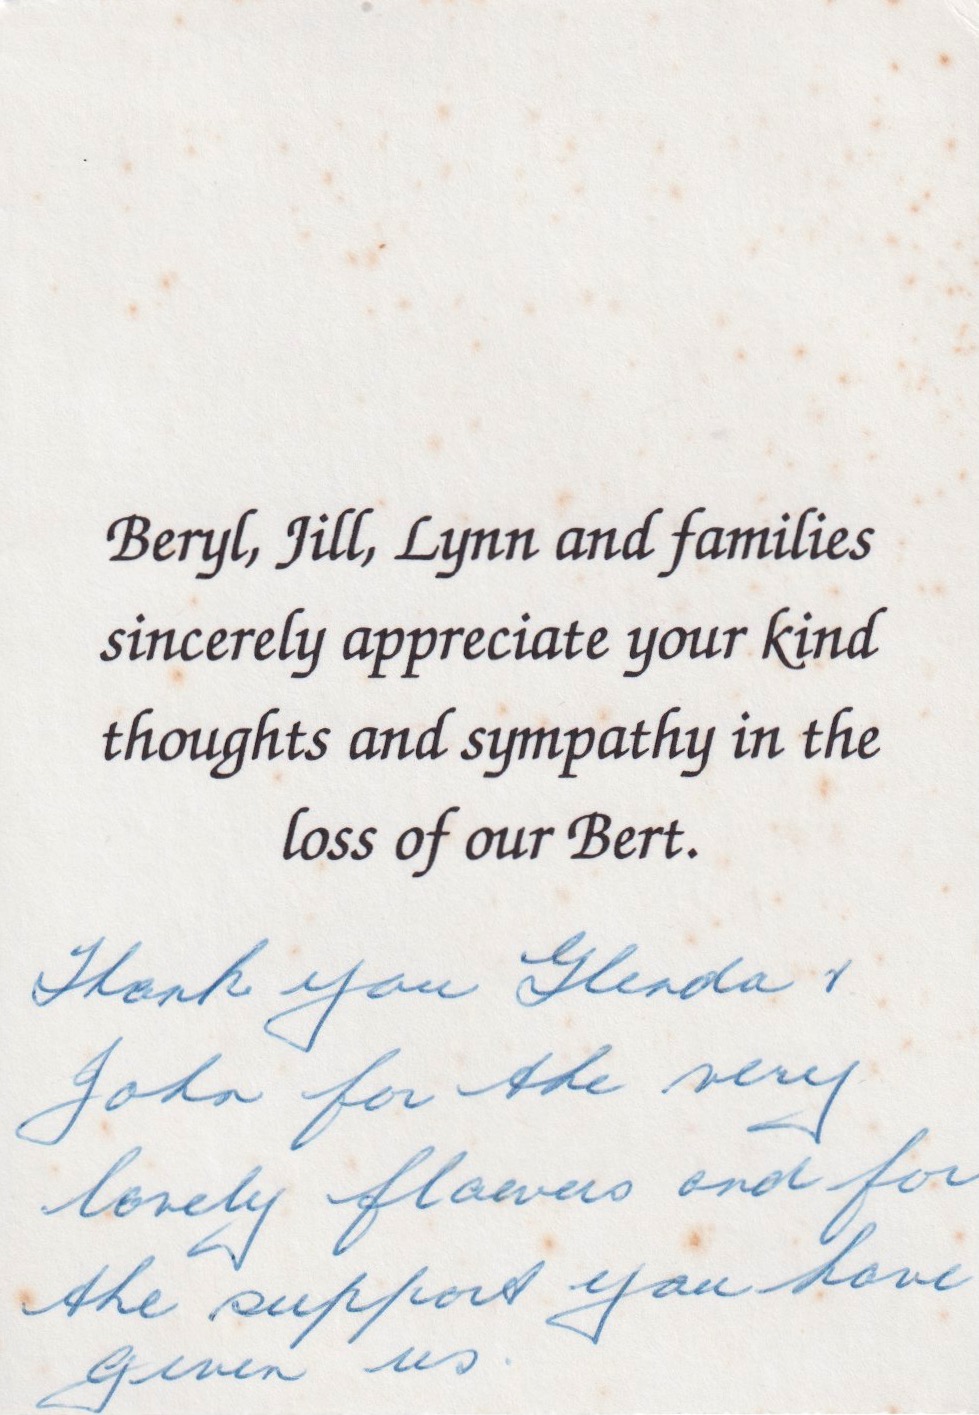 Beryl, Jill, Lynn and families
sincerely appreciate your kind
thoughts and sympathy in the
loss of our Bert.
Thank you Glenda &
John for the very
lovely flowers and for
the support you have
given us.